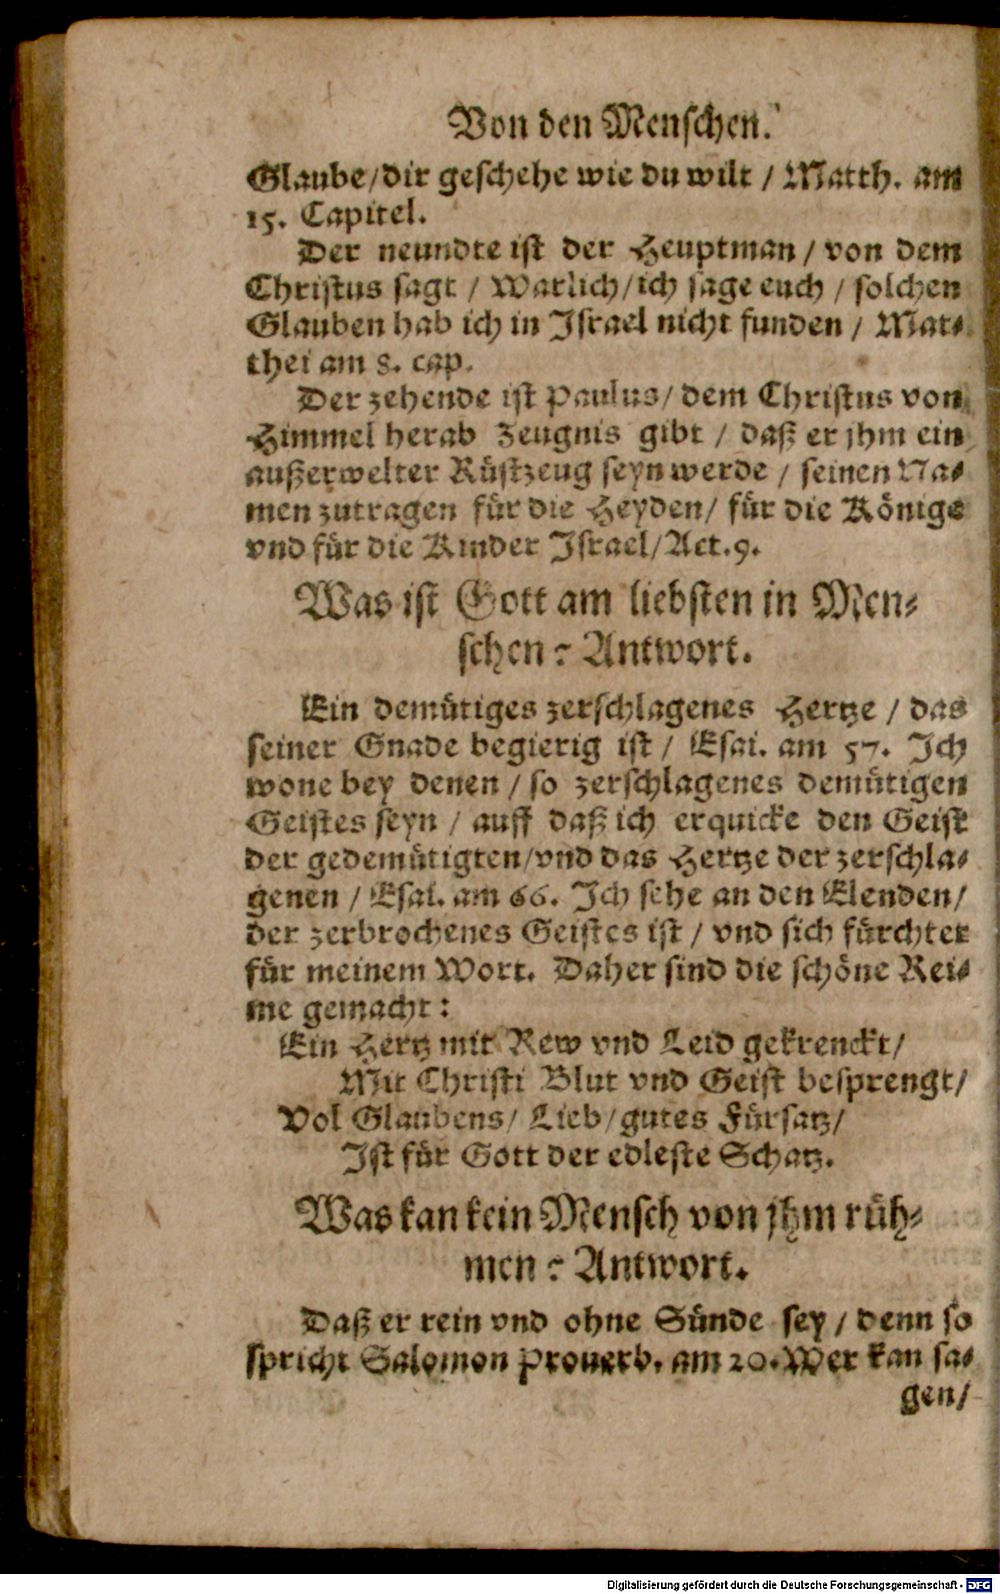 Von den Menschen.
Glaube/dir geschehe wie du wilt / Matth. am
15. Capitel.
Der neundte ist der Heuptman / von dem
Christus sagt / Warlich/ich sage euch / solchen
Glauben hab ich in Israel nicht funden / Mat⸗
thei am 8. cap.
Der zehende ist Paulus/ dem Christus von
Himmel herab Zeugnis gibt / daß er jhm ein
außerwelter Rüstzeug seyn werde / seinen Na⸗
men zutragen für die Heyden/ für die Könige
vnd für die Kinder Israel/Act.9.
Was ist Gott am liebsten in Men⸗
schen? Antwort.
Ein demütiges zerschlagenes Hertze / das
seiner Gnade begierig ist / Esai. am 57. Ich
wone bey denen / so zerschlagenes demütigen
Geistes seyn / auff daß ich erquicke den Geist
der gedemütigten/vnd das Hertze der zerschla⸗
genen / Esai. am 66. Ich sehe an den Elenden/
der zerbrochenes Geistes ist / vnd sich fürchtet
für meinem Wort. Daher sind die schöne Rei⸗
me gemacht:
Ein Hertz mit Rew vnd Leid gekrenckt/
Mit Christi Blut vnd Geist besprengt/
Vol Glaubens/ Lieb/gutes Fürsatz/
Ist für Gott der edleste Schatz.
Was kan kein Mensch von jhm rüh⸗
men? Antwort.
Daß er rein vnd ohne Sünde sey / denn so
spricht Salomon Prouerb. am 20. Wer kan sa⸗
gen/
Digitalisierung gefördert durch die Deutsche Forschungsgemeinschaft - DFG